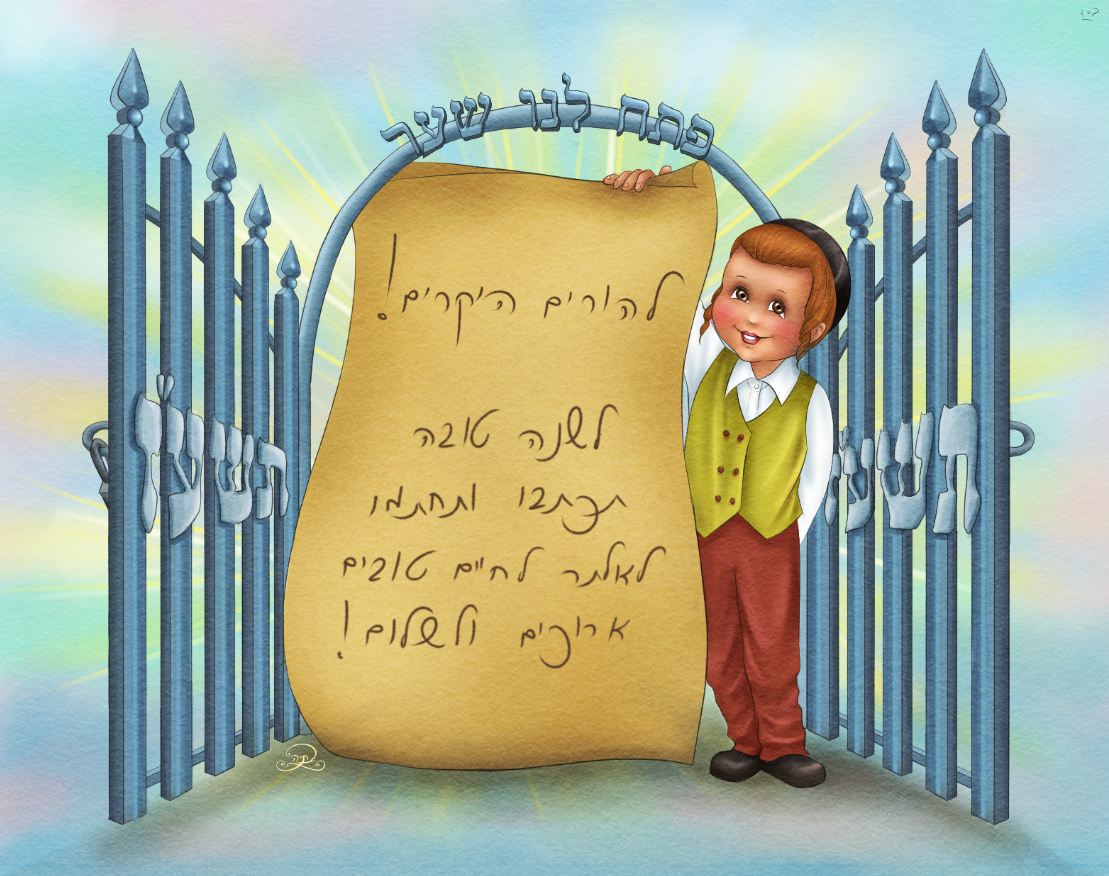 בס"ד
פתח לנו שער
להורים היקרים!
לשנה טובה
תכתבו ותחתמו
לאלתר לחיים טובים
ארוכים ולשלום!